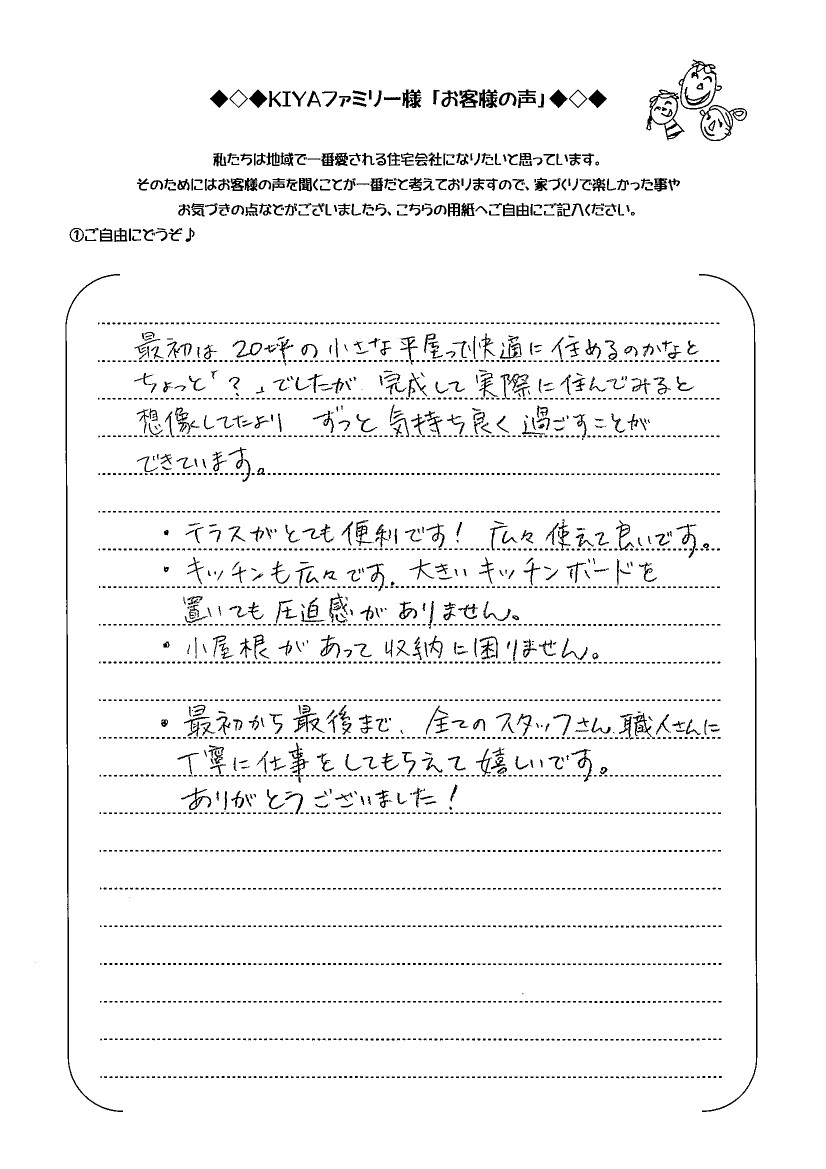 ◆◇◆KIYAファミリー様「お客様の声」◆◇◆
私たちは地域で一番愛される住宅会社になりたいと思っています。
そのためにはお客様の声を聞くことが一番だと考えておりますので、家づくりで楽しかった事や
お気づきの点などがございましたら、こちらの用紙へご自由にご記入ください。
①ご自由にどうぞ♪
最初は 20坪の小さな平屋って快適に住めるのかなと
ちょっと「?」でしたが 完成して実際に住んでみると
想像してたより ずっと気持ち良く過ごすことが
できています。
・テラスがとても便利です! 広々使えて良いです。
・キッチンも広々です。大きいキッチンボードを
置いても圧迫感がありません。
・小屋根があって収納に困りません。
・最初から最後まで、全てのスタッフさん、職人さんに
丁寧に仕事をしてもらえて嬉しいです。
ありがとうございました!